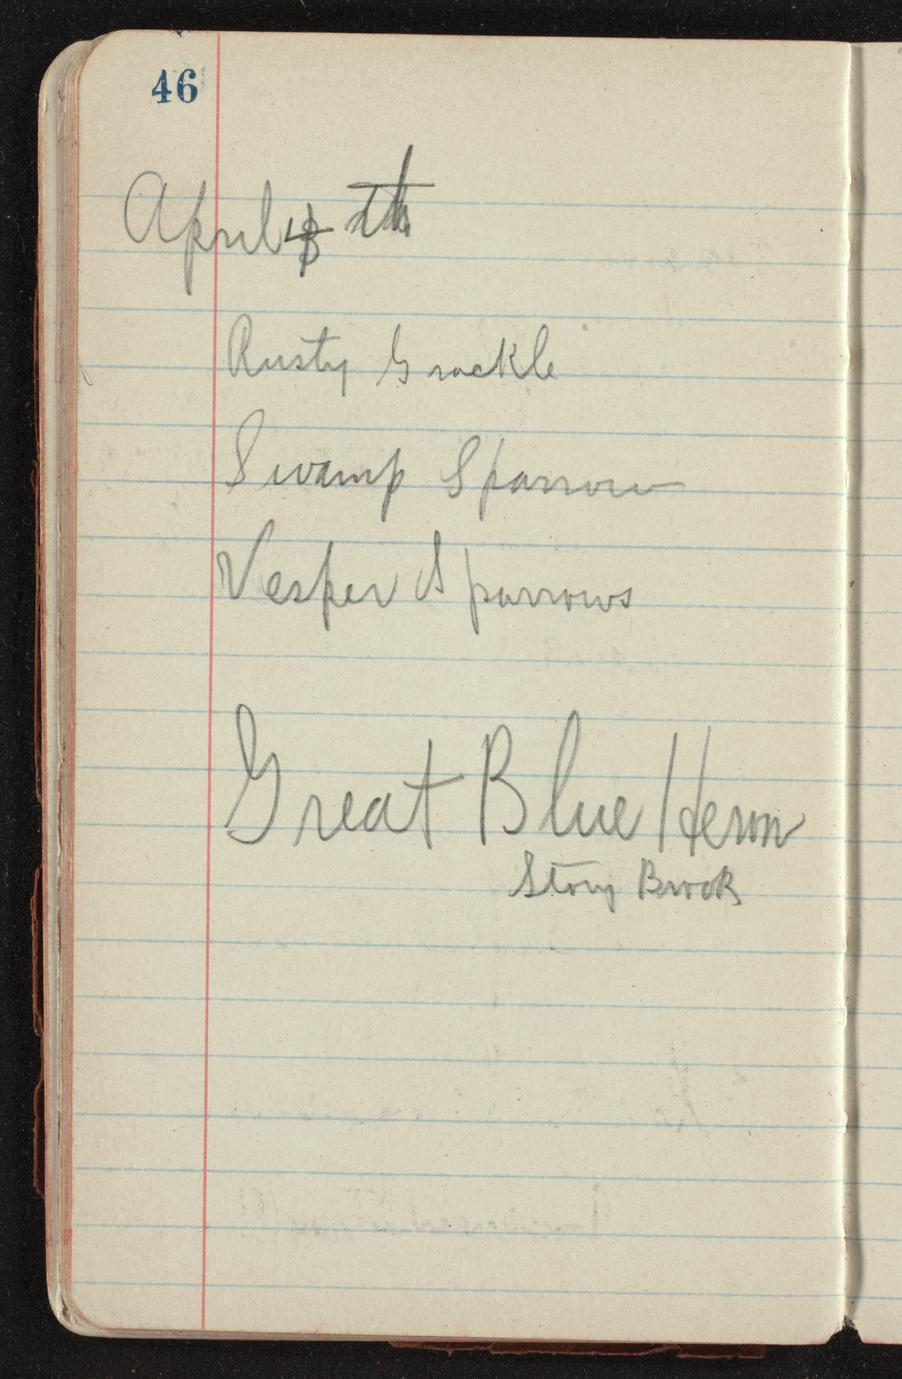 46
April th
Rusty Grackle
Swamp Sparrow
Vesper Sparrows
Great Blue Heron
Stony Brook